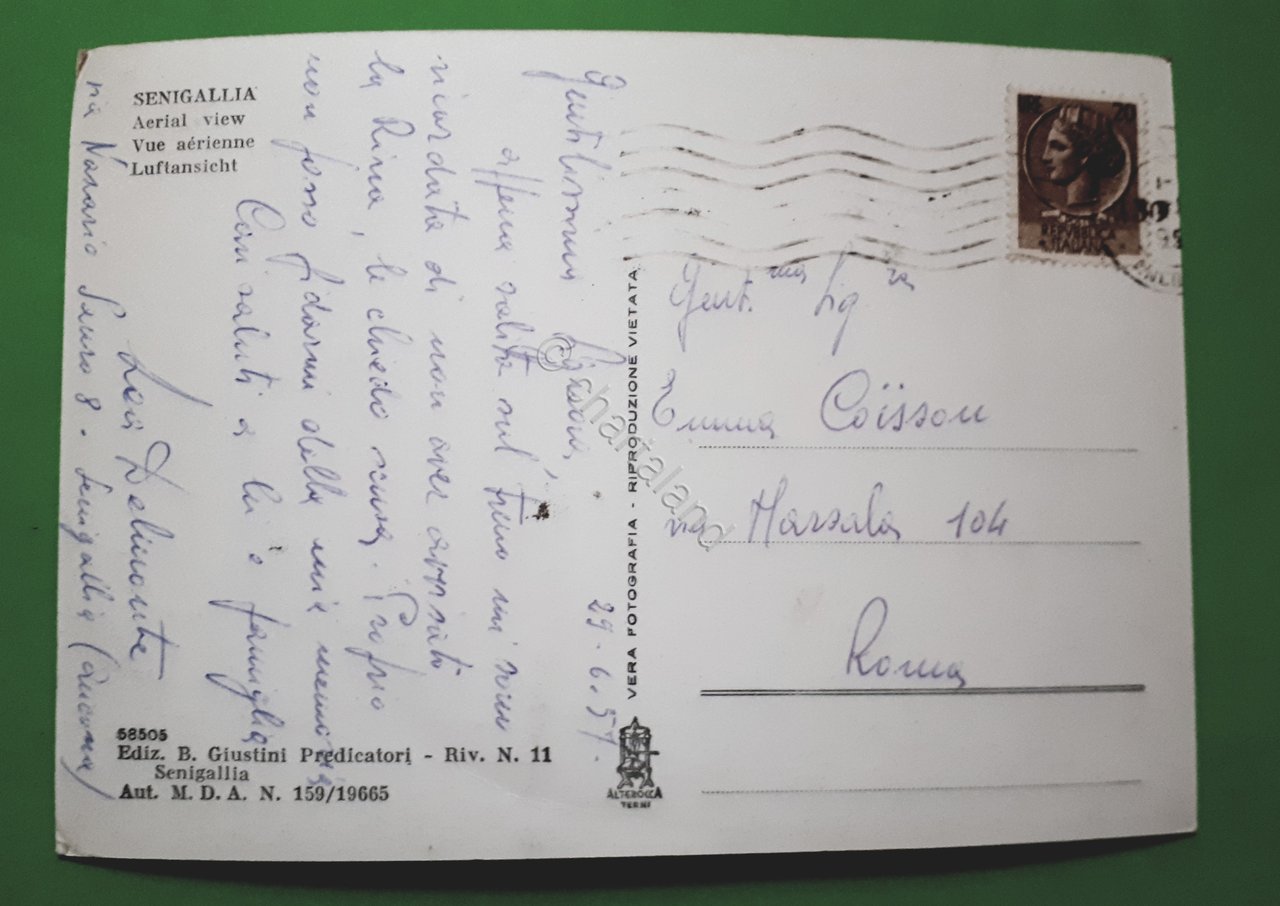 SENIGALLIA
Aerial view
Vue aérienne
Luftansicht
29.6.57.
Gentilissima
appena salita sul treno mi sono
ricordata di non aver avvisato
la Rina, le chiedo scusa. Proprio
non posso fidarmi della mia memoria
Cari saluti a lei e famiglia
Delmonte
via Nazario Sauro 8 - Senigallia (Ancona)
58505
Ediz. B. Giustini Predicatori - Riv. N. 11
Senigallia
Aut. M. D. A. N. 159/19665
VERA FOTOGRAFIA - RIPRODUZIONE VIETATA
ALTEROCCA
TERNI
LIRE 20
POSTE
REPVBBLICA
ITALIANA
Gent.ma Sig.ra
Emma Coïsson
via Marsala 104
Roma
© chartaland